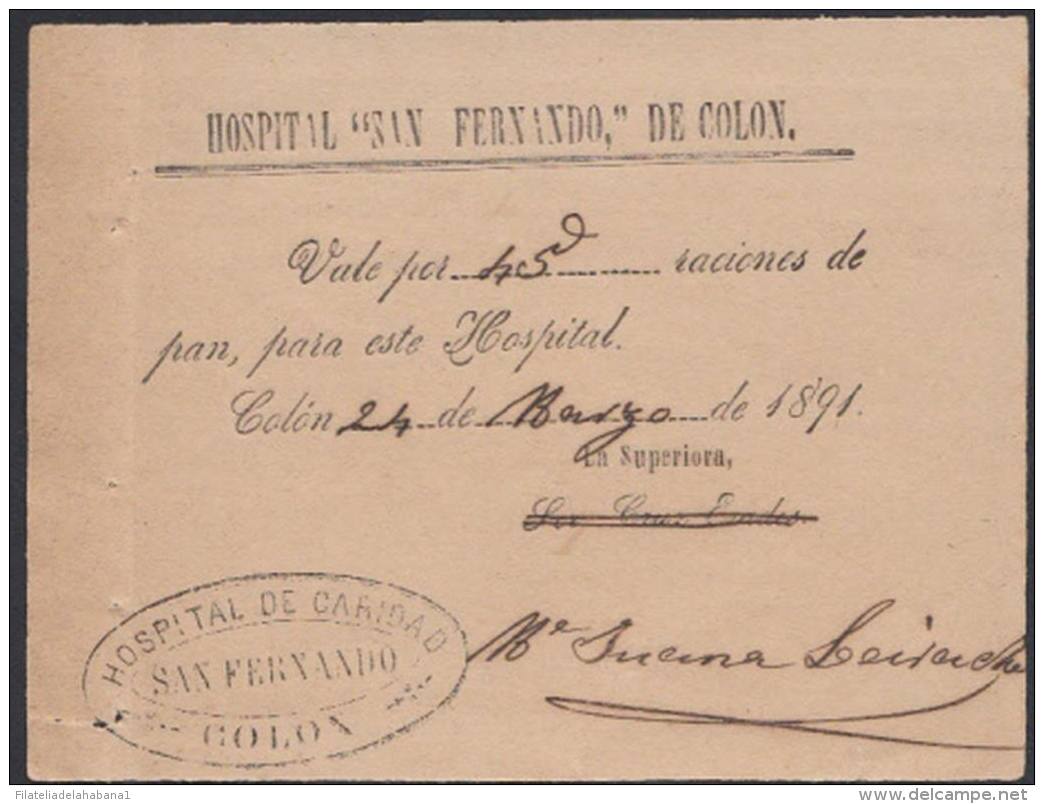 HOSPITAL “SAN FERNANDO,” DE COLON.
Vale por 45 raciones de
pan, para este Hospital.
Colón 24 de Marzo de 1891.
La Superiora,
Sor Cruz
HOSPITAL DE CARIDAD
SAN FERNANDO
COLON
Mª
Filateliadelahabana1
delcampe.net